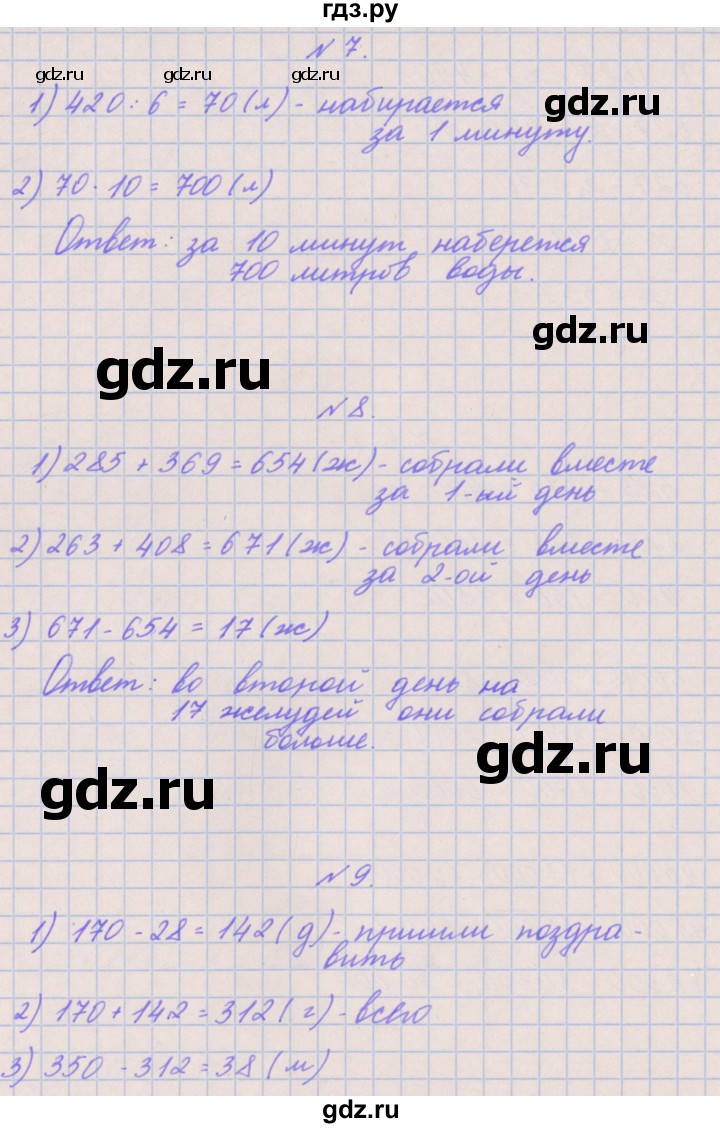 гдз.ру
№ 7.
gdz.ru gdz.ru gdz.ru
1) 420 : 6 = 70 (л) - набирается
за 1 минуту.
gdz.ru
2) 70 · 10 = 700 (л)
Ответ: за 10 минут наберется
700 литров воды.
gdz.ru
gdz.ru
№ 8.
1) 285 + 369 = 654 (ж) - собрали вместе
за 1-ый день
2) 263 + 408 = 671 (ж) - собрали вместе
за 2-ой день
3) 671 - 654 = 17 (ж)
Ответ: во второй день на
17 желудей они собрали
больше.
gdz.ru
gdz.ru
№ 9.
1) 170 - 28 = 142 (д) - пришли поздра-
вить
2) 170 + 142 = 312 (г) - всего
3) 350 - 312 = 38 (м)
gdz.ru